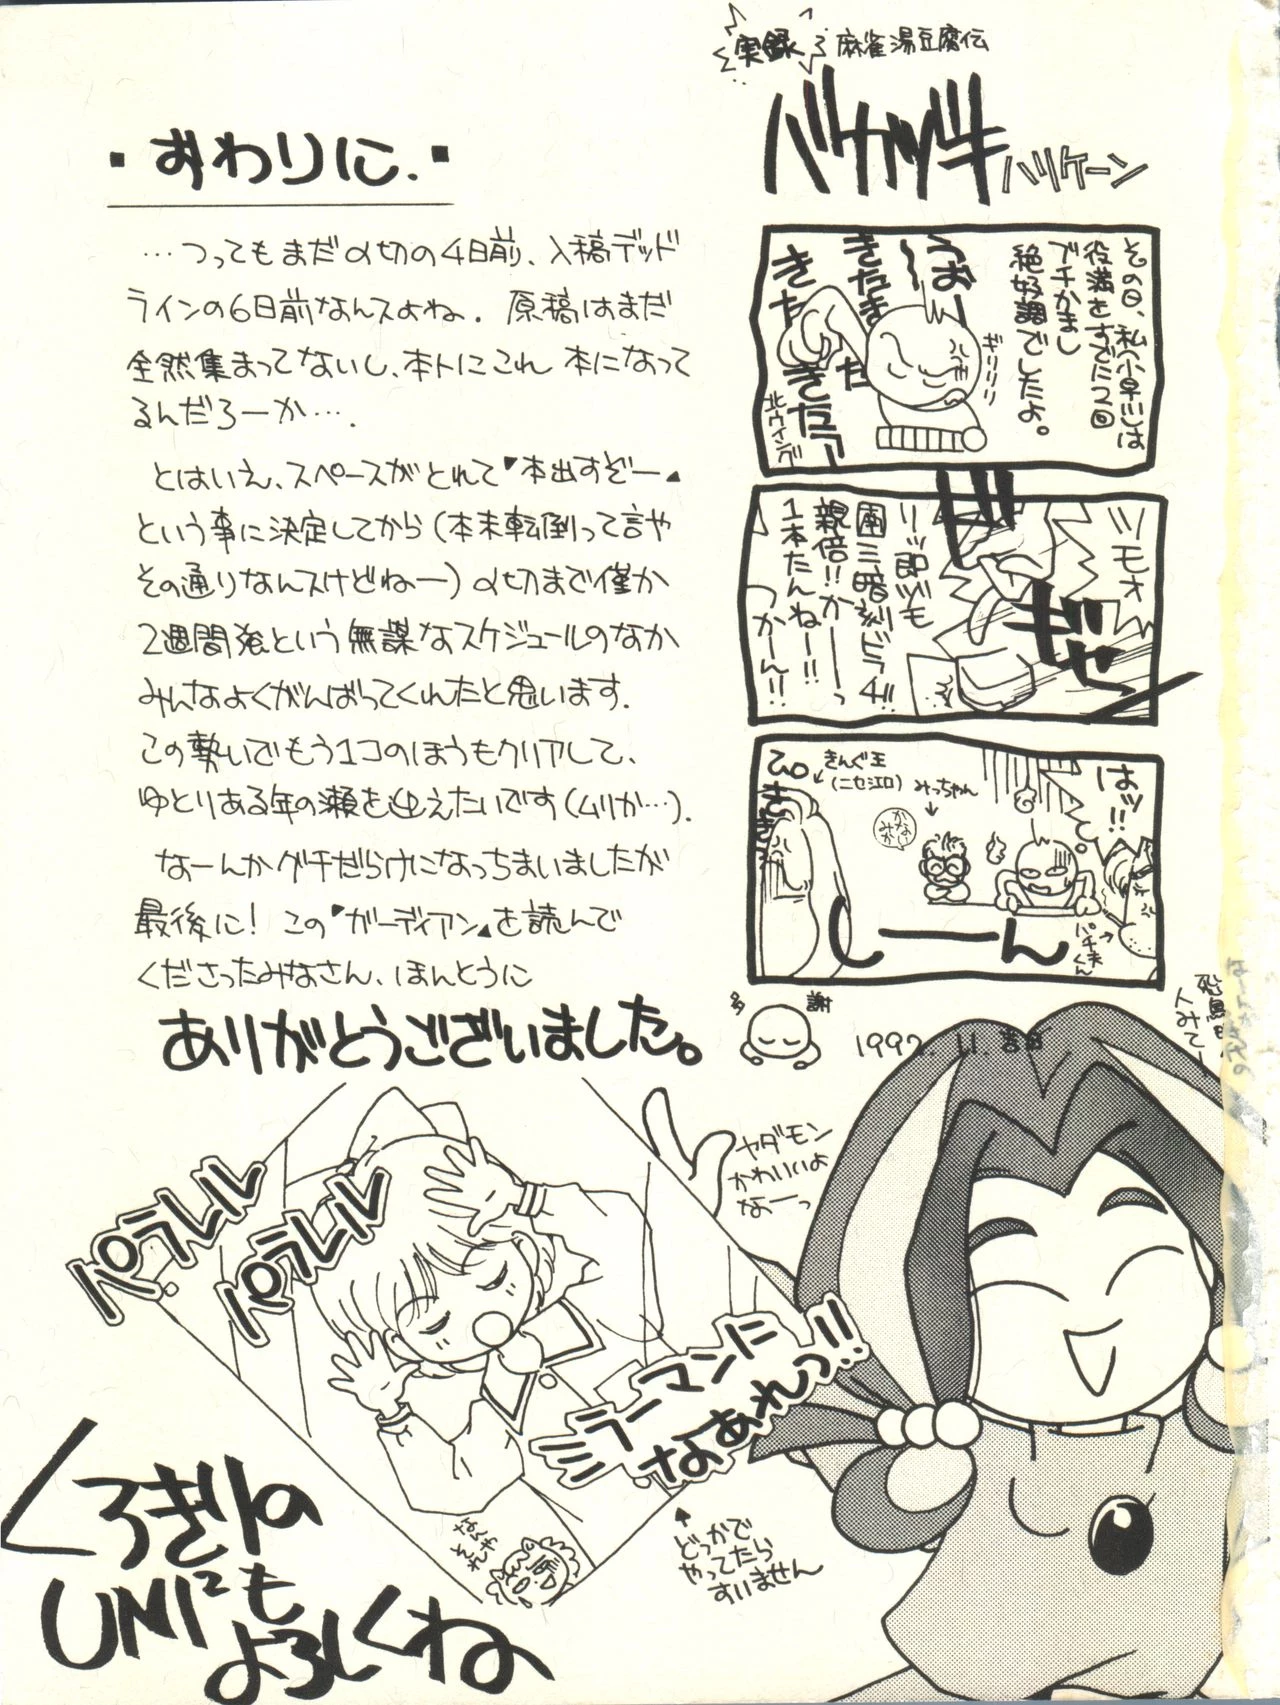 実録 麻雀湯豆腐伝
バカヅキ
ハリケーン
その日、私(小早川)は
役満をすでに2回
ブチかまし
絶好調でしたよ。
うおー
きたきた
きたきたーー
ギリリリ
北ウイング
ツモォ
ギャン
リーッ即ヅモ
面三暗刻ドラ4!!
親倍!!かーーっ
1本たんねー!!
つかーん!!
はッ!!
きんぐ王
(ニセ江口)
みっちゃん
パチ夫くん
しーーん
多謝
1992.11.吉田
・おわりに.・
…つってもまだ〆切の4日前、入稿デッド
ラインの6日前なんスよね. 原稿はまだ
全然集まってないし、本トにこれ 本になって
るんだろーか….
とはいえ、スペースがとれて"本出すぞー"
という事に決定してから(本末転倒って言や
その通りなんスけどねー)〆切まで僅か
2週間強という無謀なスケジュールのなか
みんなよくがんばってくれたと思います.
この勢いでもう1コのほうもクリアして、
ゆとりある年の瀬を迎えたいです(ムリか…).
なーんかグチだらけになっちまいましたが
最後に! この"ガーディアン"を読んで
くださったみなさん、ほんとうに
ありがとうございました。
ヤダモン
かわいいよ
なーっ
パラレル
パラレル
ミラーマンに
なあれっ!!
↑
どっかで
やってたら
すいません
なんや
それわ
くろきりの
UNI²も
よろしくね